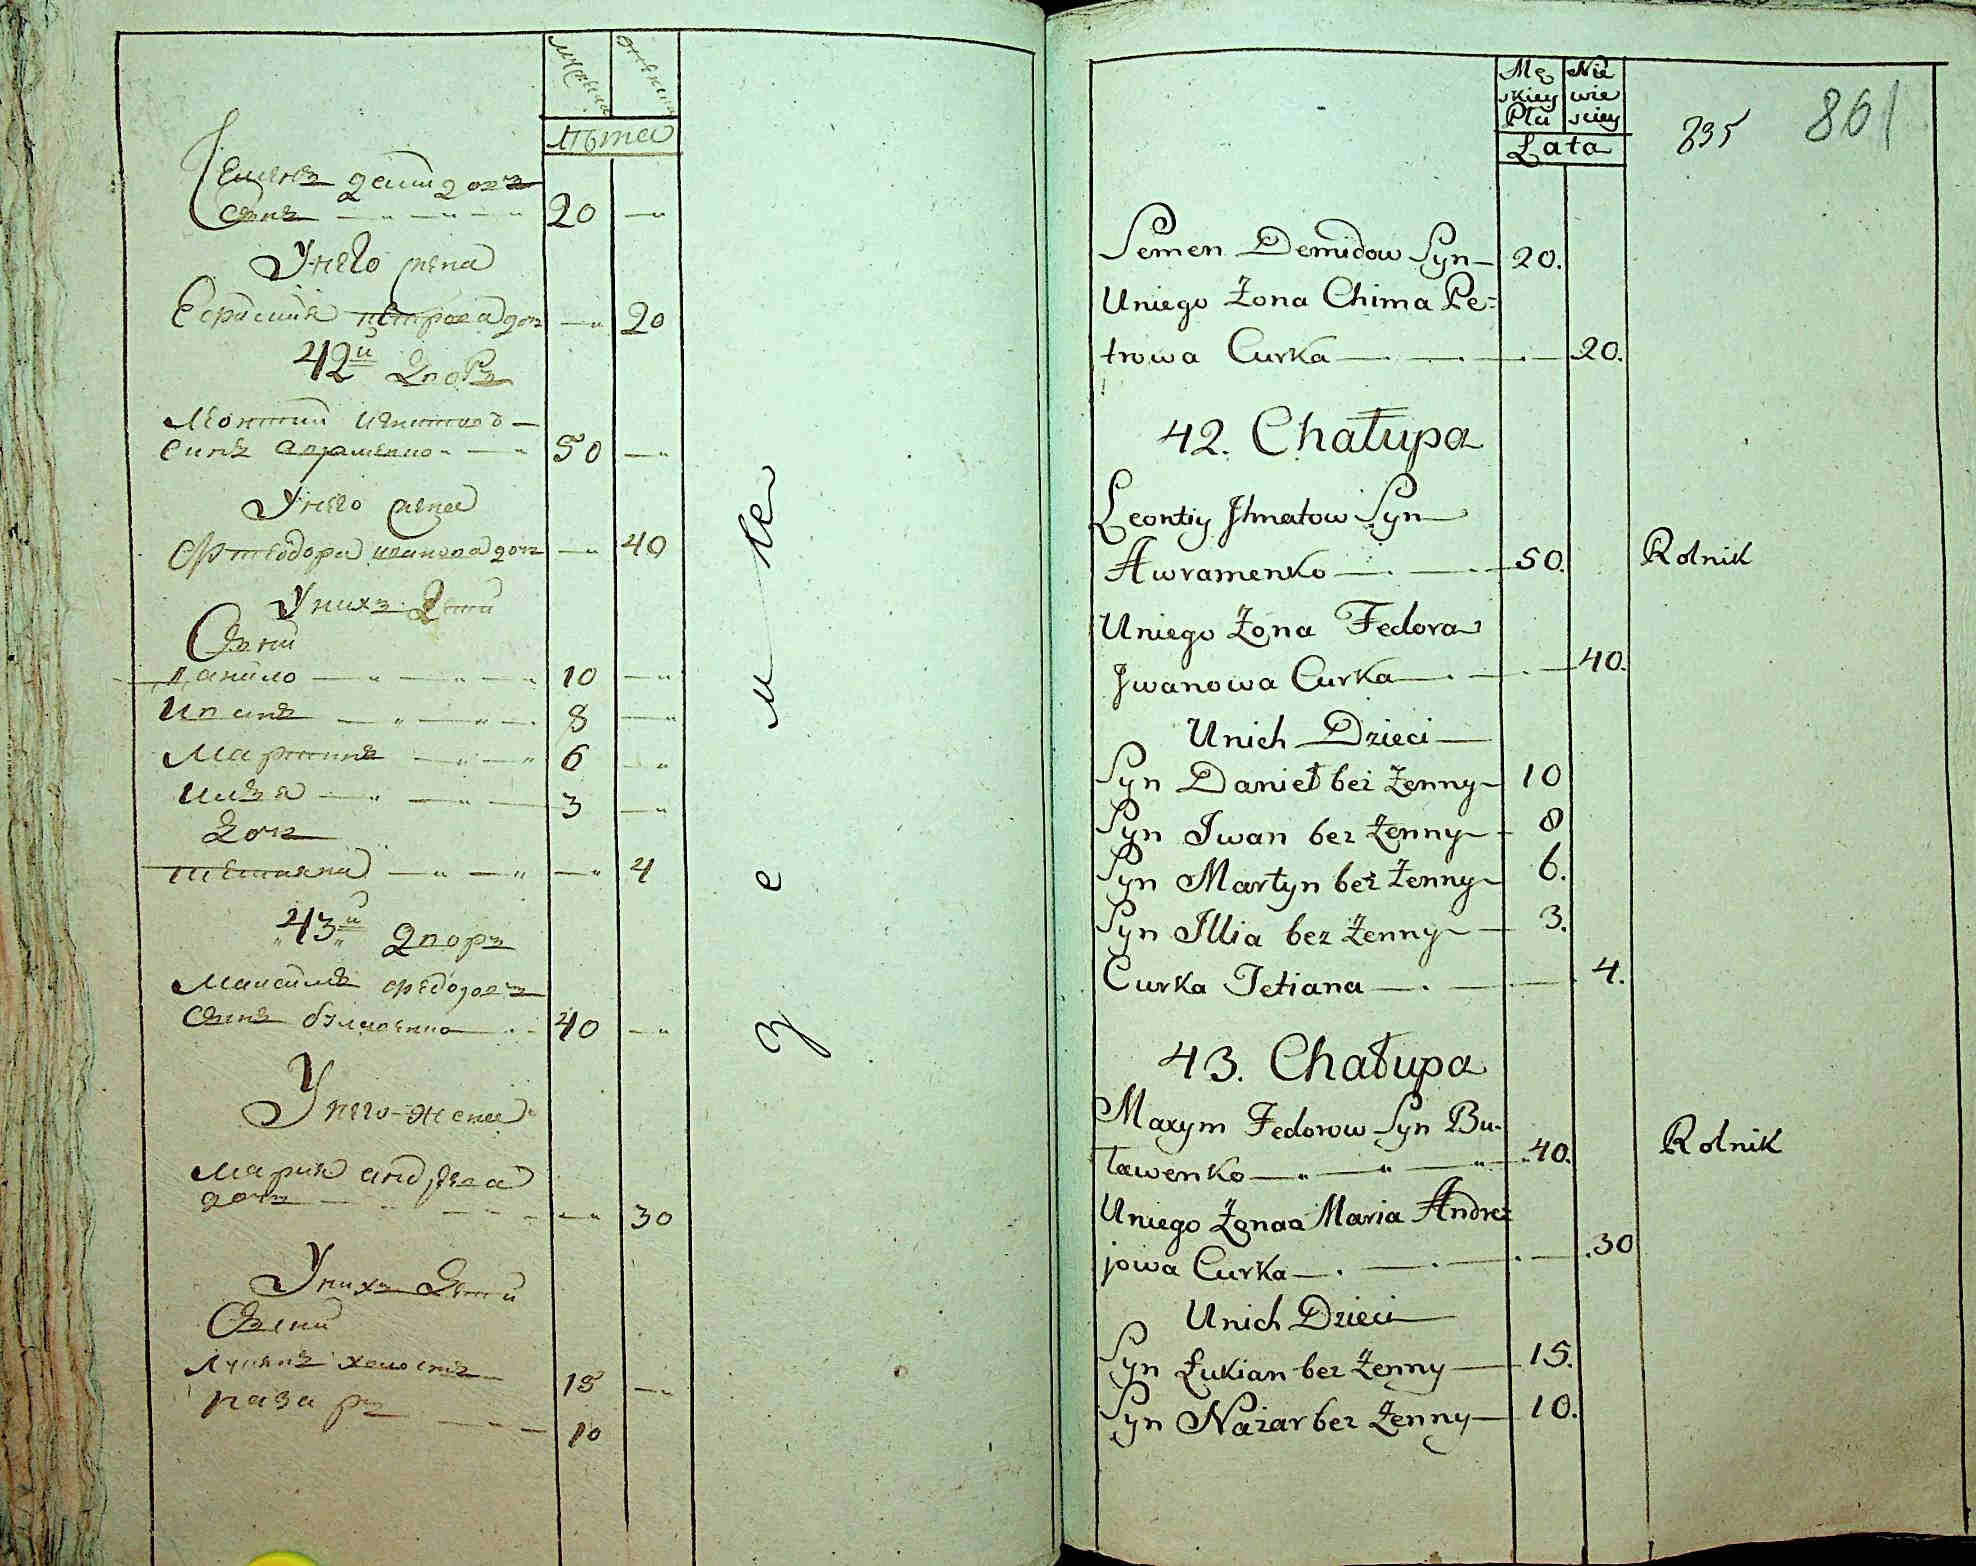 лѣта
Семенъ демидовъ
Сынъ 20
У него жена
петрова доч 20
42й Дворъ
Леонтий игнатовъ
Сынъ авраменко 50
У него жена
Ѳеодора иванова доч 40
У нихъ Дети
Сыны
Данило 10
Иванъ 8
Мартинъ 6
Илья 3
Доч
Татияна 4
43й Дворъ
Максимъ федоровъ
Сынъ булавенко 40
У него жена
Мария андреева
дочъ 30
У нихъ Дети
Сыны
Лукянъ холостъ 15
назаръ 10
з е м ле
Mę Nie
skiey wie
Płci sciey
Lata
835 861
Semen Demidow Syn 20.
Uniego Żona Chima Pe-
trowa Curka 20.
42. Chałupa
Leontiy Ihnatow Syn
Awramenko 50. Rolnik
Uniego Żona Fedora
Iwanowa Curka 40.
Unich Dzieci
Syn Danieł bez Żenny 10
Syn Iwan bez Żenny 8
Syn Martyn bez Żenny 6.
Syn Illia bez Żenny 3.
Curka Tetiana 4.
43. Chałupa
Maxym Fedorow Syn Bu-
ławenko 40. Rolnik
Uniego Żonaa Maria Andre-
jowa Curka 30
Unich Dzieci
Syn Łukian bez Żenny 15.
Syn Nazar bez Żenny 10.